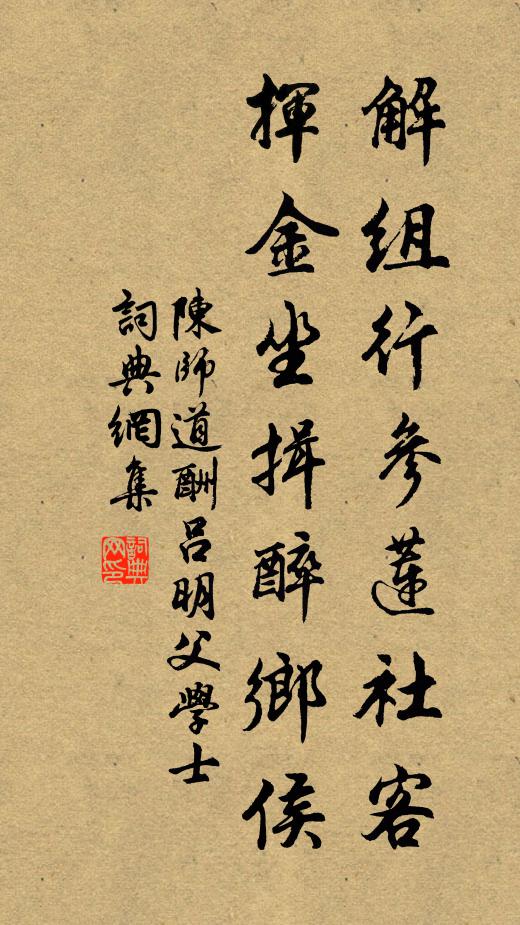 解組行參蓮社客
揮金坐揖醉鄉侯
陳師道酬呂明父學士
詞典網集
詞典網印